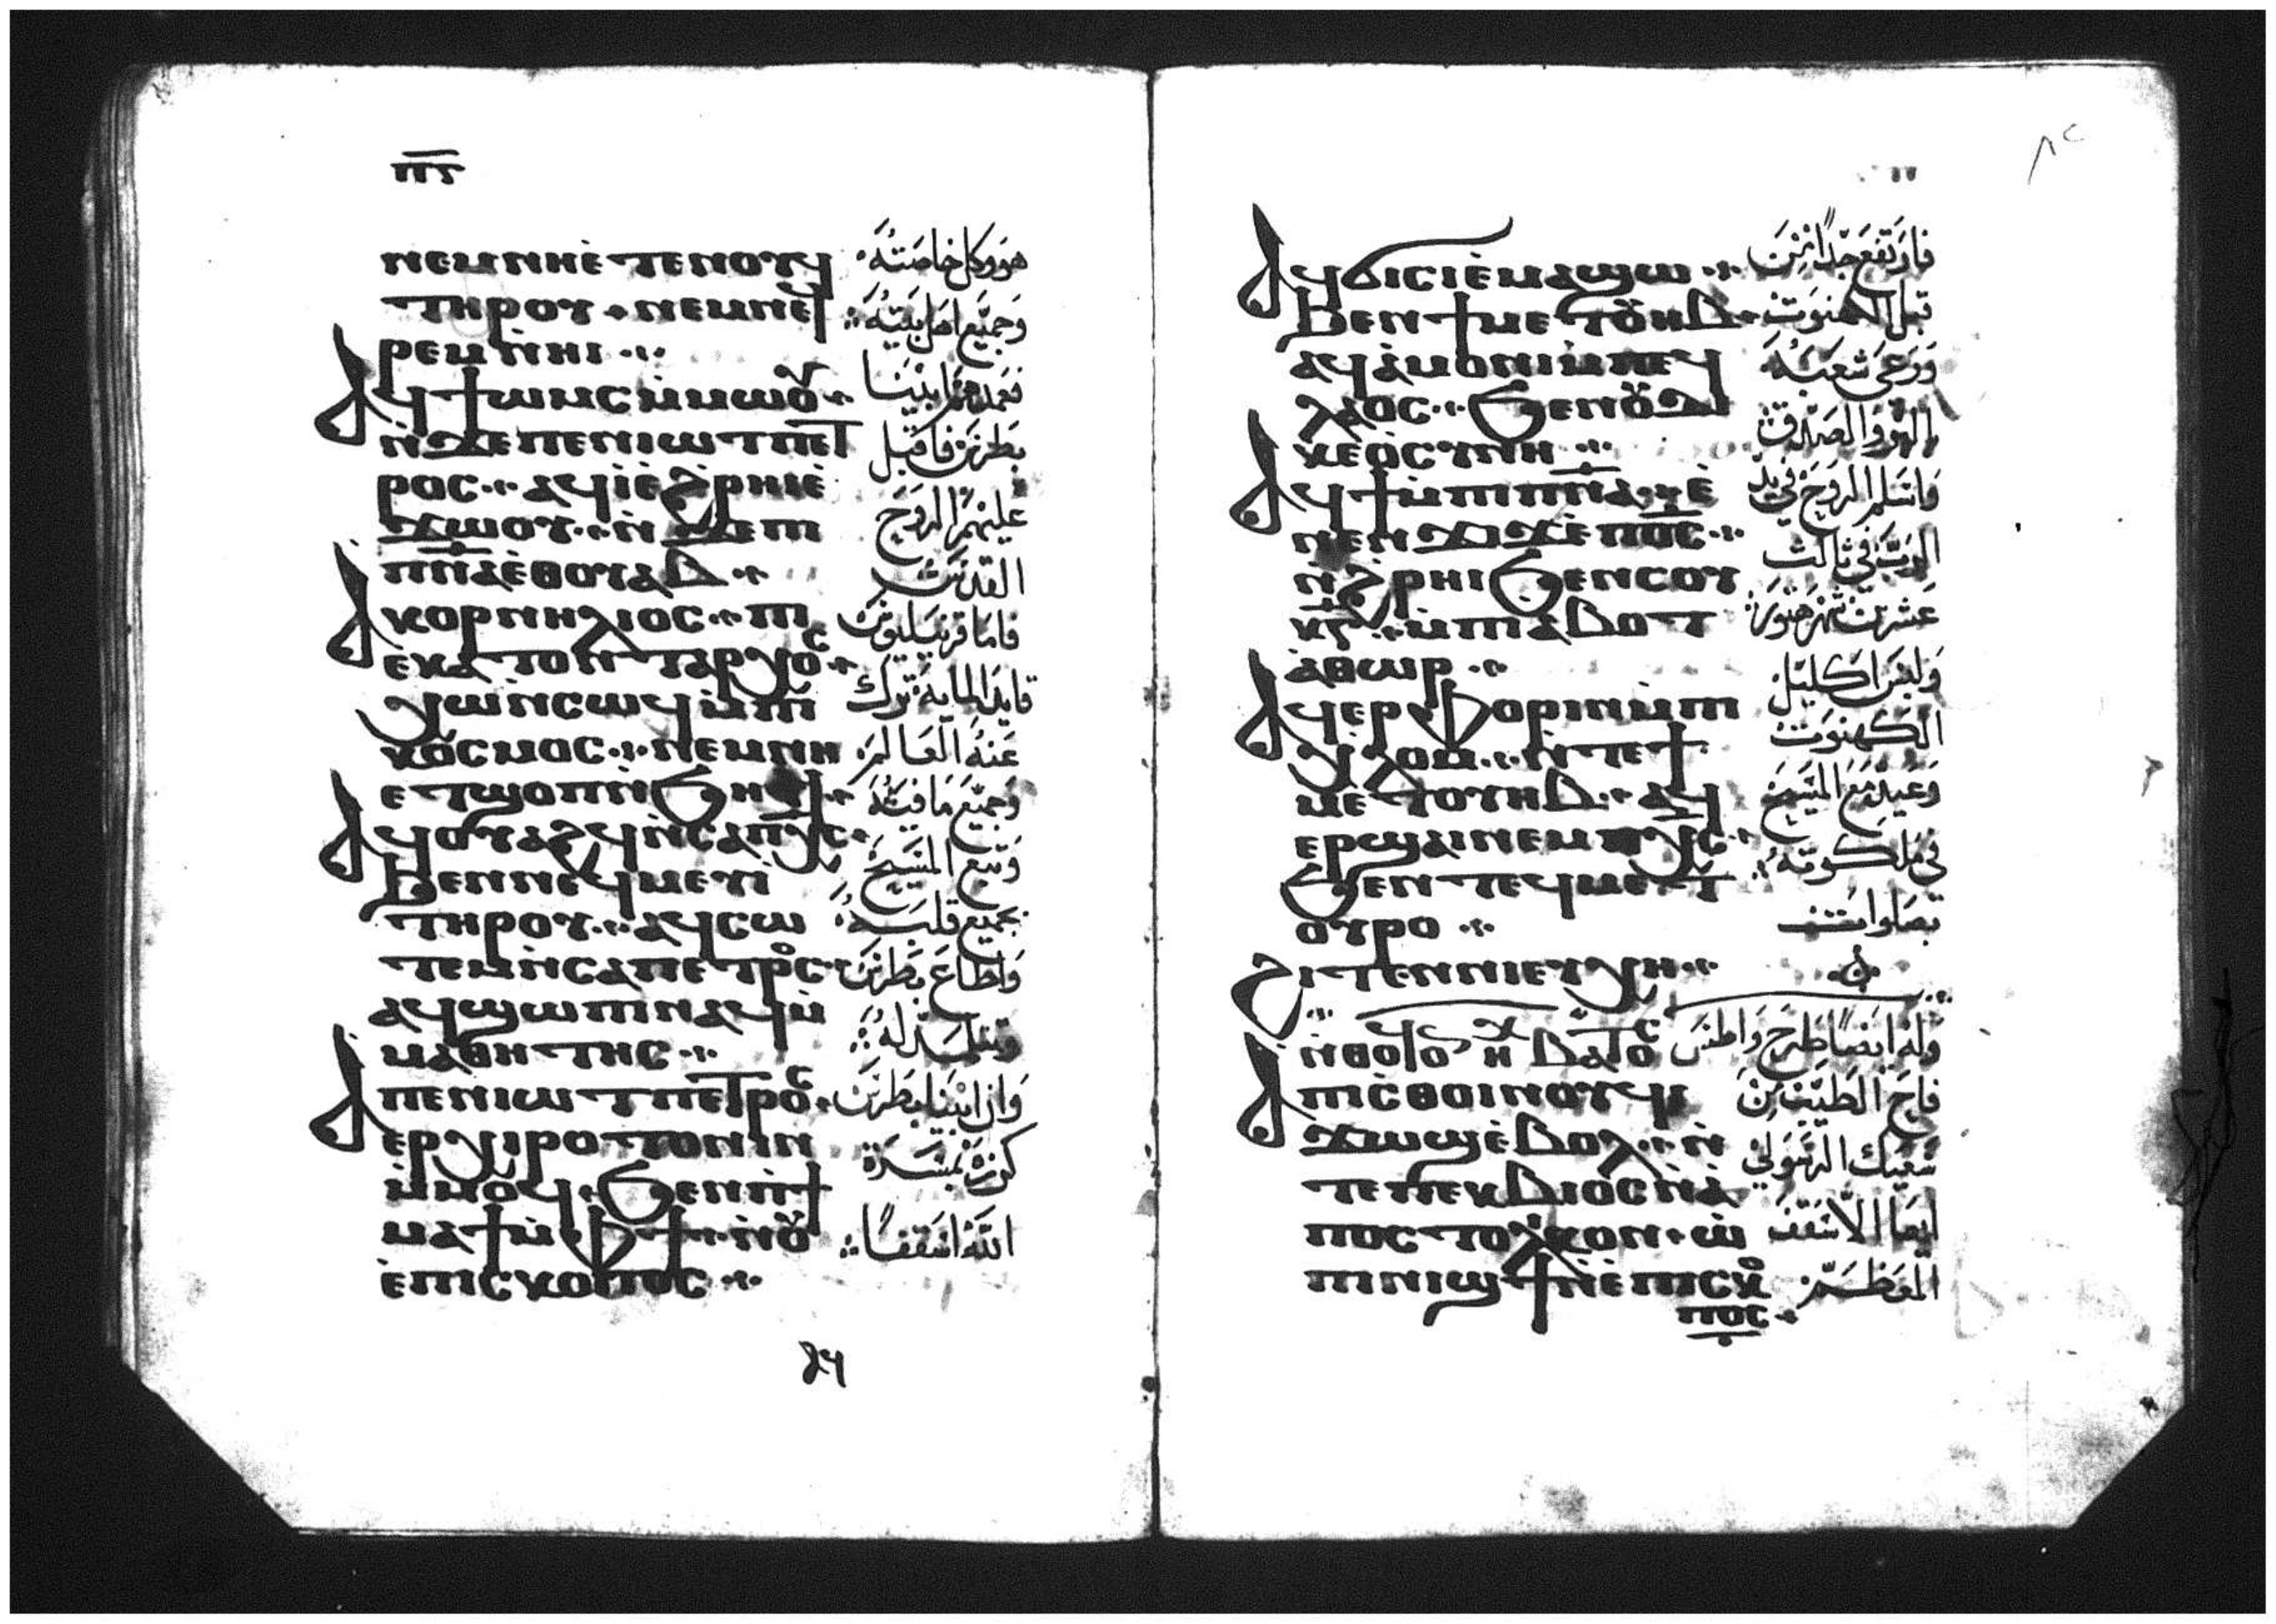 ⲡ̅ⲋ̅
ⲛⲉⲙⲛⲏⲉ̀ⲧⲉⲛⲟⲩϥ
ⲧⲏⲣⲟⲩ · ⲛⲉⲙⲛⲉϥ
ⲣⲉⲙⲛ̀ⲏⲓ
ⲁϥϯⲱⲙⲥ ⲙ̀ⲙⲱⲟⲩ
ⲛ̀ϫⲉⲡⲉⲛⲓⲱⲧ ⲡⲉⲧ
ⲣⲟⲥ ⲁϥⲓ̀ⲉ̀ϩⲣⲏⲓⲉ̀
ϫⲱⲟⲩ ⲛ̀ϫⲉⲡⲓ
ⲡⲛ̅ⲁ̅ⲉⲑⲟⲩⲁⲃ
ⲁⲕⲟⲣⲛⲏⲗⲓⲟⲥ ⲡⲓ
ⲉ̀ⲕⲁⲧⲟⲛⲧⲁⲣⲭⲟⲥ
ⲭⲱⲛ̀ⲥⲱϥⲙ̀ⲡⲓ
ⲕⲟⲥⲙⲟⲥ ⲛⲉⲙⲛⲏ
ⲉⲧϣⲟⲡⲛ̀ϧⲏⲧϥ
ⲁϥⲟⲩⲁϩϥⲛ̀ⲥⲁⲡⲭ̅ⲥ̅
ϧⲉⲛⲛⲉϥⲙⲉⲩⲓ̀
ⲧⲏⲣⲟⲩ ⲁϥⲥⲱ
ⲧⲉⲙⲛ̀ⲥⲁⲡⲉⲧⲣⲟⲥ
ⲁϥϣⲱⲡⲓⲛⲁϥⲙ̀
ⲙⲁⲑⲏⲧⲏⲥ
ⲁⲡⲉⲛⲓⲱⲧ ⲡⲉⲧⲣⲟⲥ
ⲉⲣⲭⲓⲣⲟⲧⲟⲛⲓⲛ
ⲙ̀ⲙⲟϥ ϧⲉⲛⲡ̀ϯ
ⲙⲁϯⲙ̀ⲫϯ ⲛ̀ⲟⲩ
ⲉ̀ⲡⲓⲥⲕⲟⲡⲟⲥ
هو وكل خاصته
وجميع اهل بيته
فعمدهم ابينا
بطرس فاقبل
عليهم الروح
القدس
فاما قرنيليوس
قايد المايه ترك
عنه العالم
وجميع ما فيه
وتبع المسيح
بجميع قلبه
واطاع بطرس
وتتلمد له
وان ابينا بطرس
كرزه بمسرة
الله اسقفا
ⲁϥϭⲓⲥⲓⲉ̀ⲙⲁϣⲱ
ϧⲉⲛϯⲙⲉⲧⲟⲩⲏⲃ
ⲁϥⲁ̀ⲙⲟⲛⲓⲙ̀ⲡⲉϥ
ⲗⲁⲟⲥ ϧⲉⲛⲟⲩⲇⲓ
ⲕⲉⲟ̀ⲥⲩⲛⲏ
ⲁϥϯⲙ̀ⲡⲓⲡⲛ̅ⲁ̅ ⲉ̀
ⲛⲉⲛϫⲓϫⲙ̀ⲡⲟ̅ⲥ̅
ⲛ̀ϩⲣⲏⲓϧⲉⲛⲥⲟⲩ
ⲕ̅ⲅ̅ ⲙ̀ⲡⲓⲁ̀ⲃⲟⲧ
ⲁ̀ⲑⲱⲣ
ⲁϥⲉⲣⲫⲟⲣⲓⲛⲙ̀ⲡⲓ
ⲭ̀ⲗⲟⲙ ⲛ̀ⲧⲉϯ
ⲙⲉⲧⲟⲩⲏⲃ ⲁϥ
ⲉⲣϣⲁⲓⲛⲉⲙⲡⲭ̅ⲥ̅
ϧⲉⲛⲧⲉϥⲙⲉⲧ
ⲟⲩⲣⲟ
ϩⲓⲧⲉⲛⲛⲓⲉⲩⲭⲏ
ⲁⲡⲓⲥ̀ⲑⲟⲓⲛⲟⲩϥⲓ
ϫⲱϣⲉ̀ⲃⲟⲗ ⲛ̀
ⲧⲉⲡⲉⲕⲃⲓⲟⲥⲛ̀ⲁ̀
ⲡⲟⲥⲧⲟⲗⲓⲕⲟⲛ ⲱ̀
ⲡⲓⲛⲓϣϯⲛ̀ⲉ̀ⲡⲓⲥⲕⲟ
ⲡⲟⲥ
٨٢
فارتفع جدا من
قبل الكهنوت
ورعى شعبه
بالبر والصدق
فاسلم الروح في يد
الرب في ثالث
عشرين شهر هتور
ولبس اكليل
الكهنوت
وعيد مع المسيح
في ملكوته
بصلوات
وله ايضا طرح واطس
فاح الطيب من
سعيك الرسولي
ايها الاسقف
المعظم